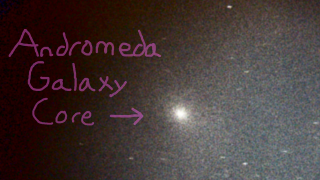 Andromeda
Galaxy
Core →